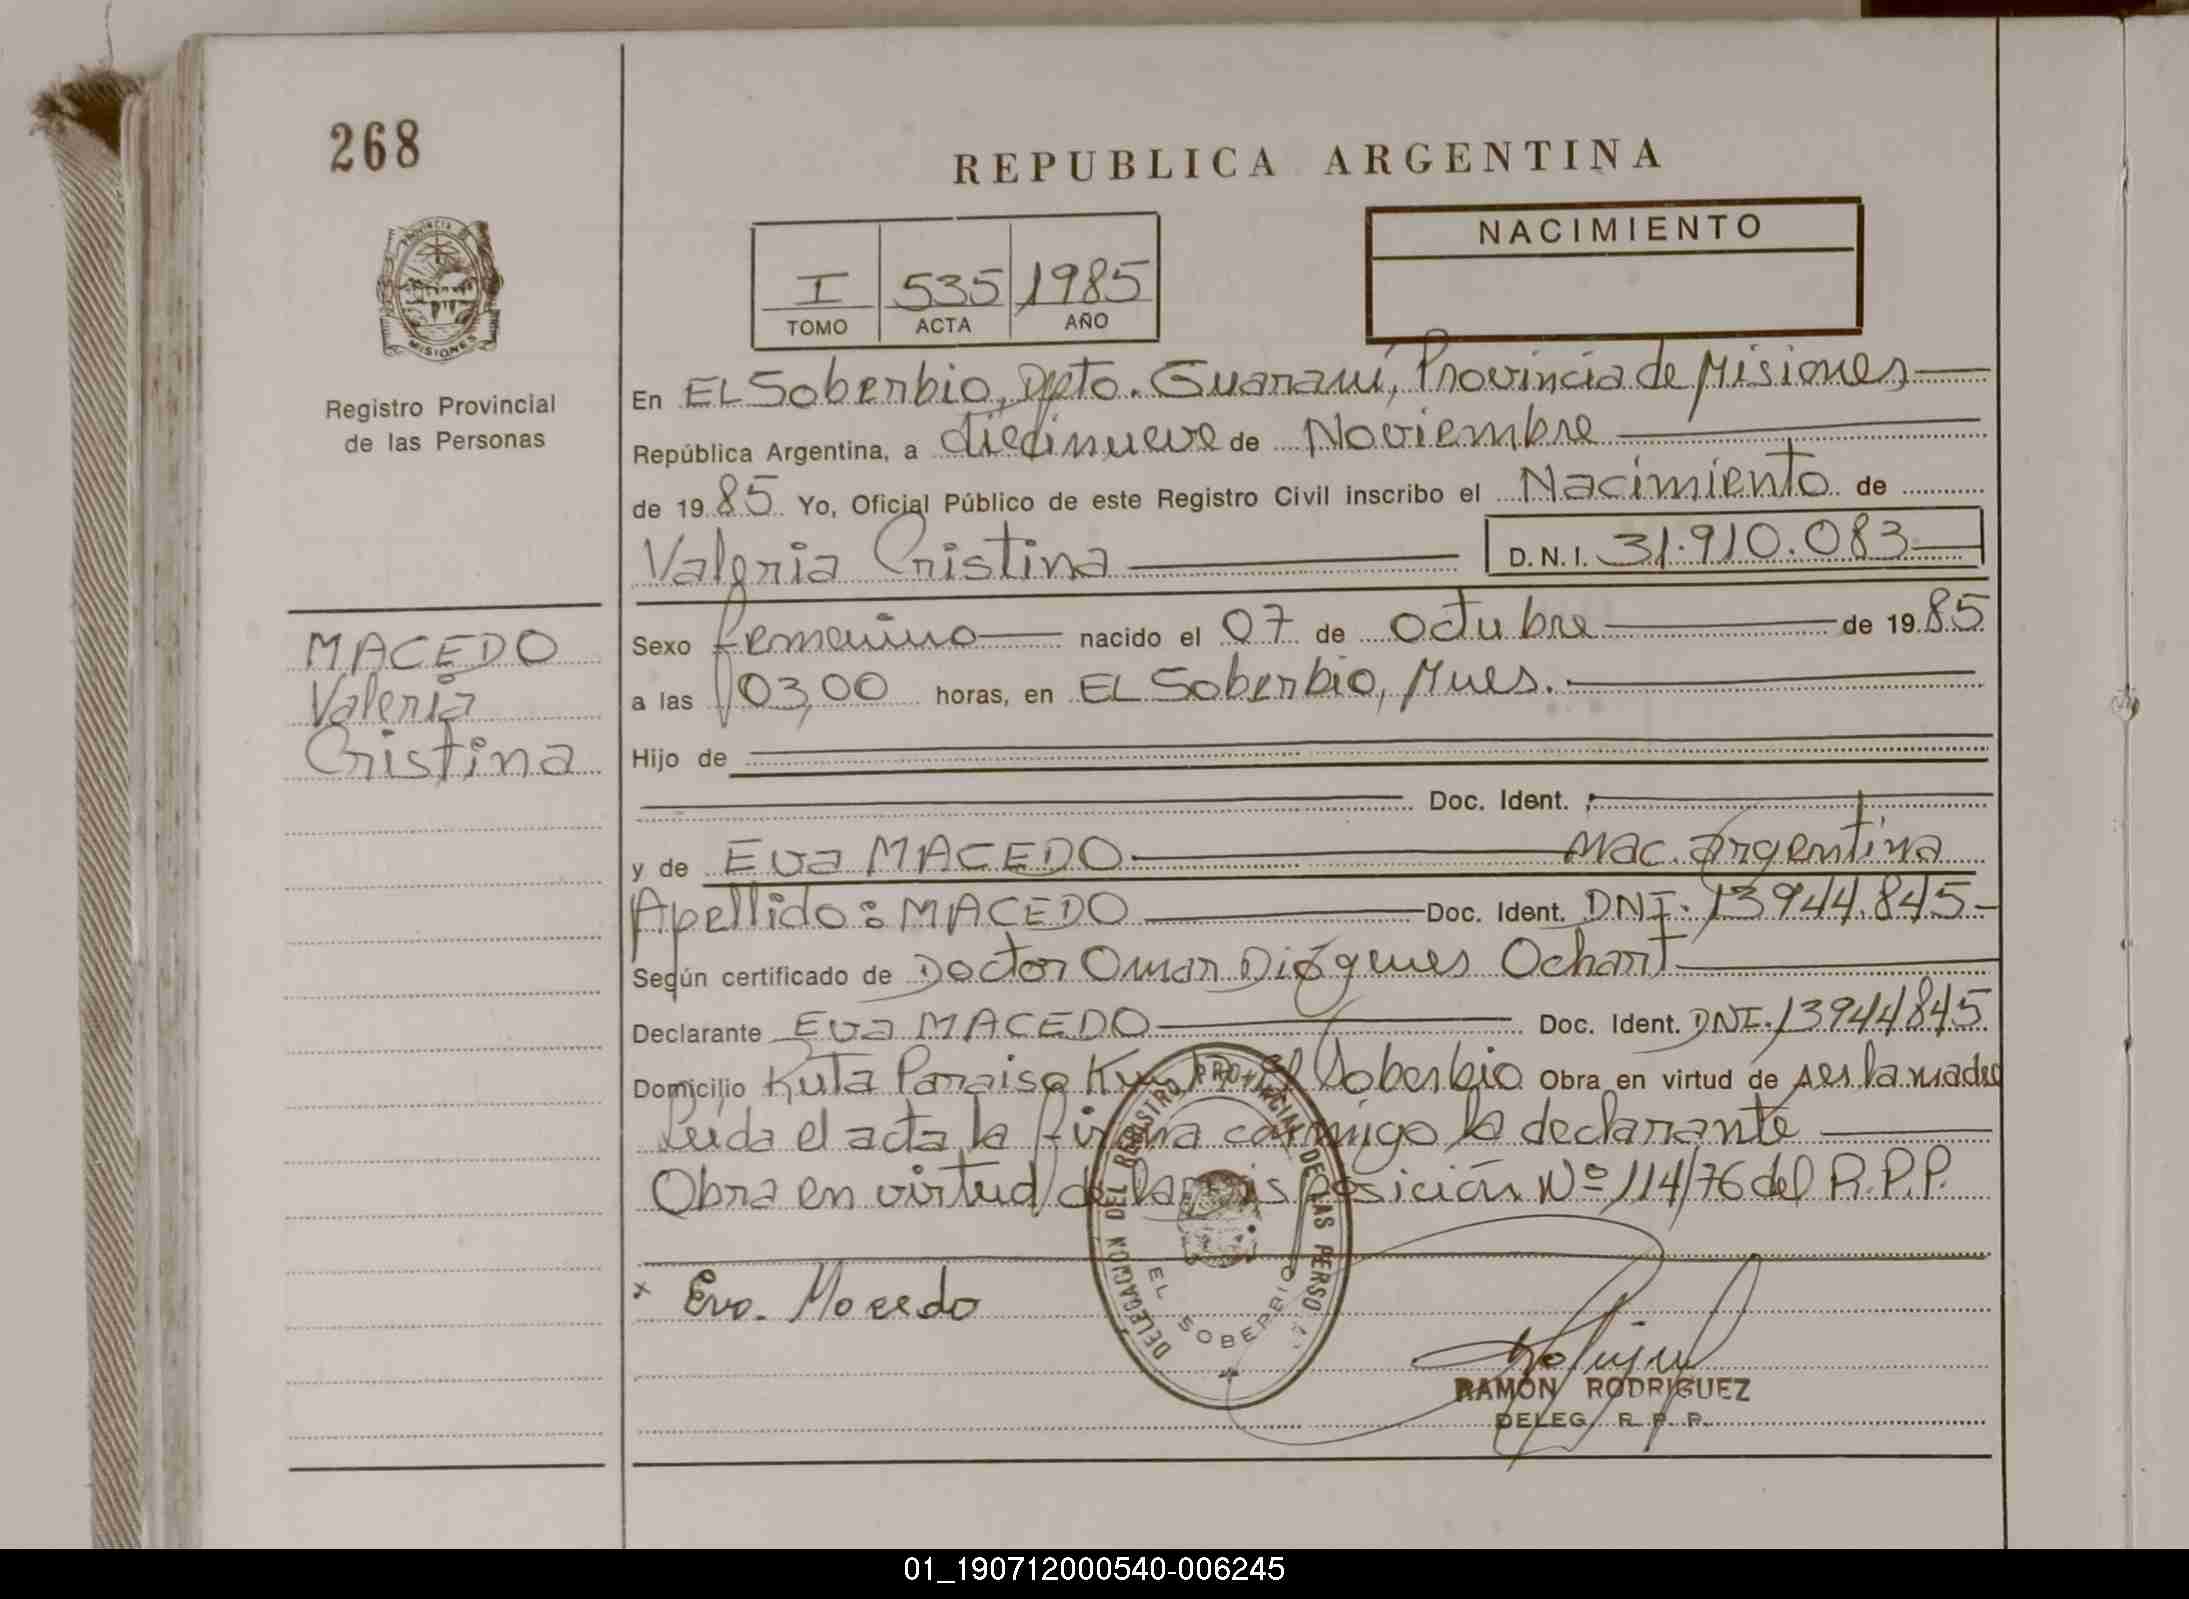 268
REPUBLICA ARGENTINA
NACIMIENTO
I 535 1985
TOMO ACTA AÑO
PROVINCIA D
MISIONES
Registro Provincial
de las Personas
En EL Soberbio, Dpto. Guaraní, Provincia de Misiones
República Argentina, a diecinueve de Noviembre
de 19 85 Yo, Oficial Público de este Registro Civil inscribo el Nacimiento de
Valeria Cristina D.N.I. 31.910.083
MACEDO
Valeria
Cristina
Sexo femenino nacido el 07 de Octubre de 19 85
a las 03,00 horas, en EL Soberbio, Mnes.
Hijo de
Doc. Ident.
y de Eva MACEDO Nac. argentina
Apellido: MACEDO Doc. Ident. DNI. 13944.845
Según certificado de Doctor Omar Diógenes Ochart
Declarante Eva MACEDO Doc. Ident. DNI. 13944845
Domicilio Ruta Paraiso Km El Soberbio Obra en virtud de ser la madre
Leída el acta la firma conmigo la declarante
Obra en virtud de la Disposición Nº 114/76 del R.P.P.
DELEGACION DEL REGISTRO PROVINCIAL DE LAS PERSO
EL SOBERBIO
x Eva. Macedo
RAMON RODRIGUEZ
DELEG. R. P. P.
01_190712000540-006245